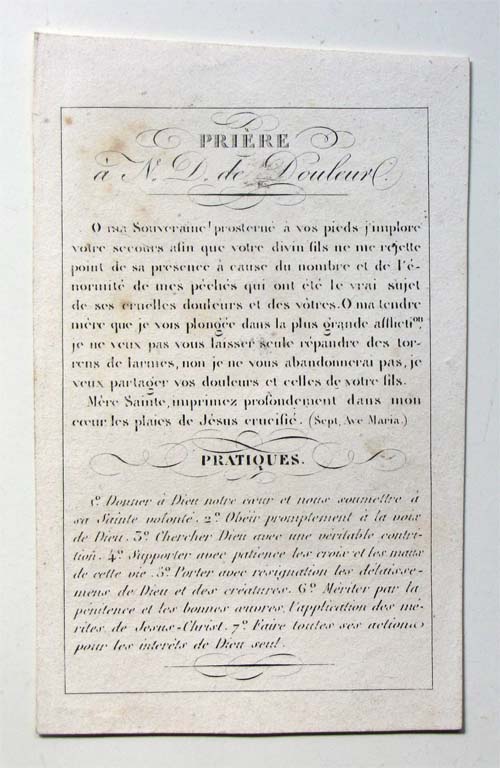 PRIÈRE
à N. D. de Douleur
O ma Souveraine! prosterné à vos pieds j'implore
votre secours afin que votre divin fils ne me rejette
point de sa presence à cause du nombre et de l'é-
normité de mes péchés qui ont été le vrai sujet
de ses cruelles douleurs et des vôtres. O ma tendre
mère que je vois plongée dans la plus grande afflicti^on,
je ne veux pas vous laisser seule répandre des tor-
rens de larmes, non je ne vous abandonnerai pas, je
veux partager vos douleurs et celles de votre fils.
Mère Sainte, imprimez profondement dans mon
cœur les plaies de Jésus crucifié. (Sept, Ave Maria.)
PRATIQUES.
1º Donner à Dieu notre cœur et nous soumettre à
sa Sainte volonté. 2º Obéir promptement à la voix
de Dieu. 3º Chercher Dieu avec une véritable contri-
tion. 4º Supporter avec patience les croix et les maux
de cette vie. 5º Porter avec résignation les délaisse-
mens de Dieu et des créatures. 6º Mériter par la
pénitence et les bonnes œuvres, l'application des mé-
rites de Jesus-Christ. 7º Faire toutes ses actions
pour les intérêts de Dieu seul.